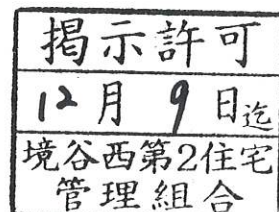 掲示許可
12月9日迄
境谷西第2住宅
管理組合